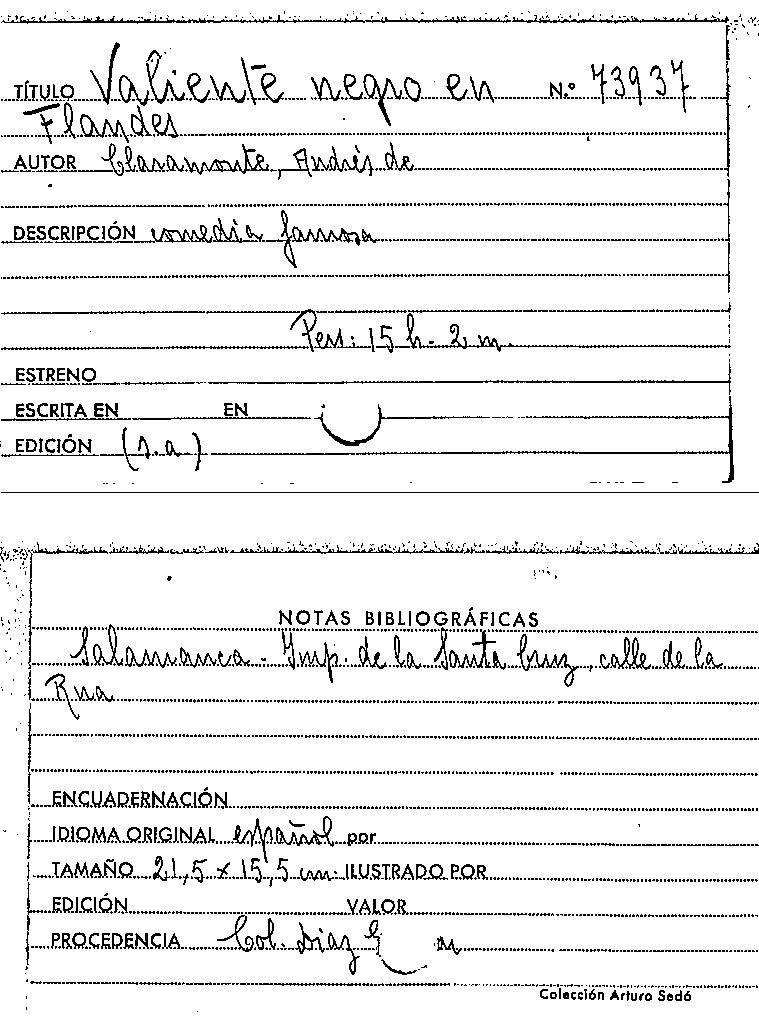 TÍTULO Valiente negro en N.º 73937
Flandes
AUTOR Claramonte, Andrés de
DESCRIPCIÓN comedia famosa
Pers: 15 h. 2 m.
ESTRENO
ESCRITA EN EN
EDICIÓN (s.a)
NOTAS BIBLIOGRÁFICAS
Salamanca. Imp. de la Santa Cruz, calle de la
Rua
ENCUADERNACIÓN
IDIOMA ORIGINAL español por
TAMAÑO 21,5 x 15,5 cm. ILUSTRADO POR
EDICIÓN VALOR
PROCEDENCIA Col. Díaz
Colección Arturo Sedó